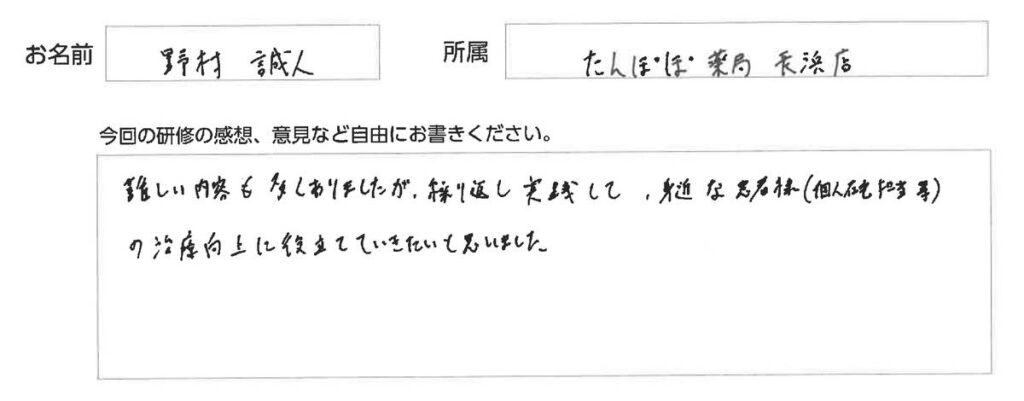 お名前 野村 誠人 所属 たんぽぽ薬局 長浜店
今回の研修の感想、意見など自由にお書きください。
難しい内容も多くありましたが、繰り返し実践して、身近な患者様(個人在宅担当等)
の治療向上に役立てていきたいと思いました。